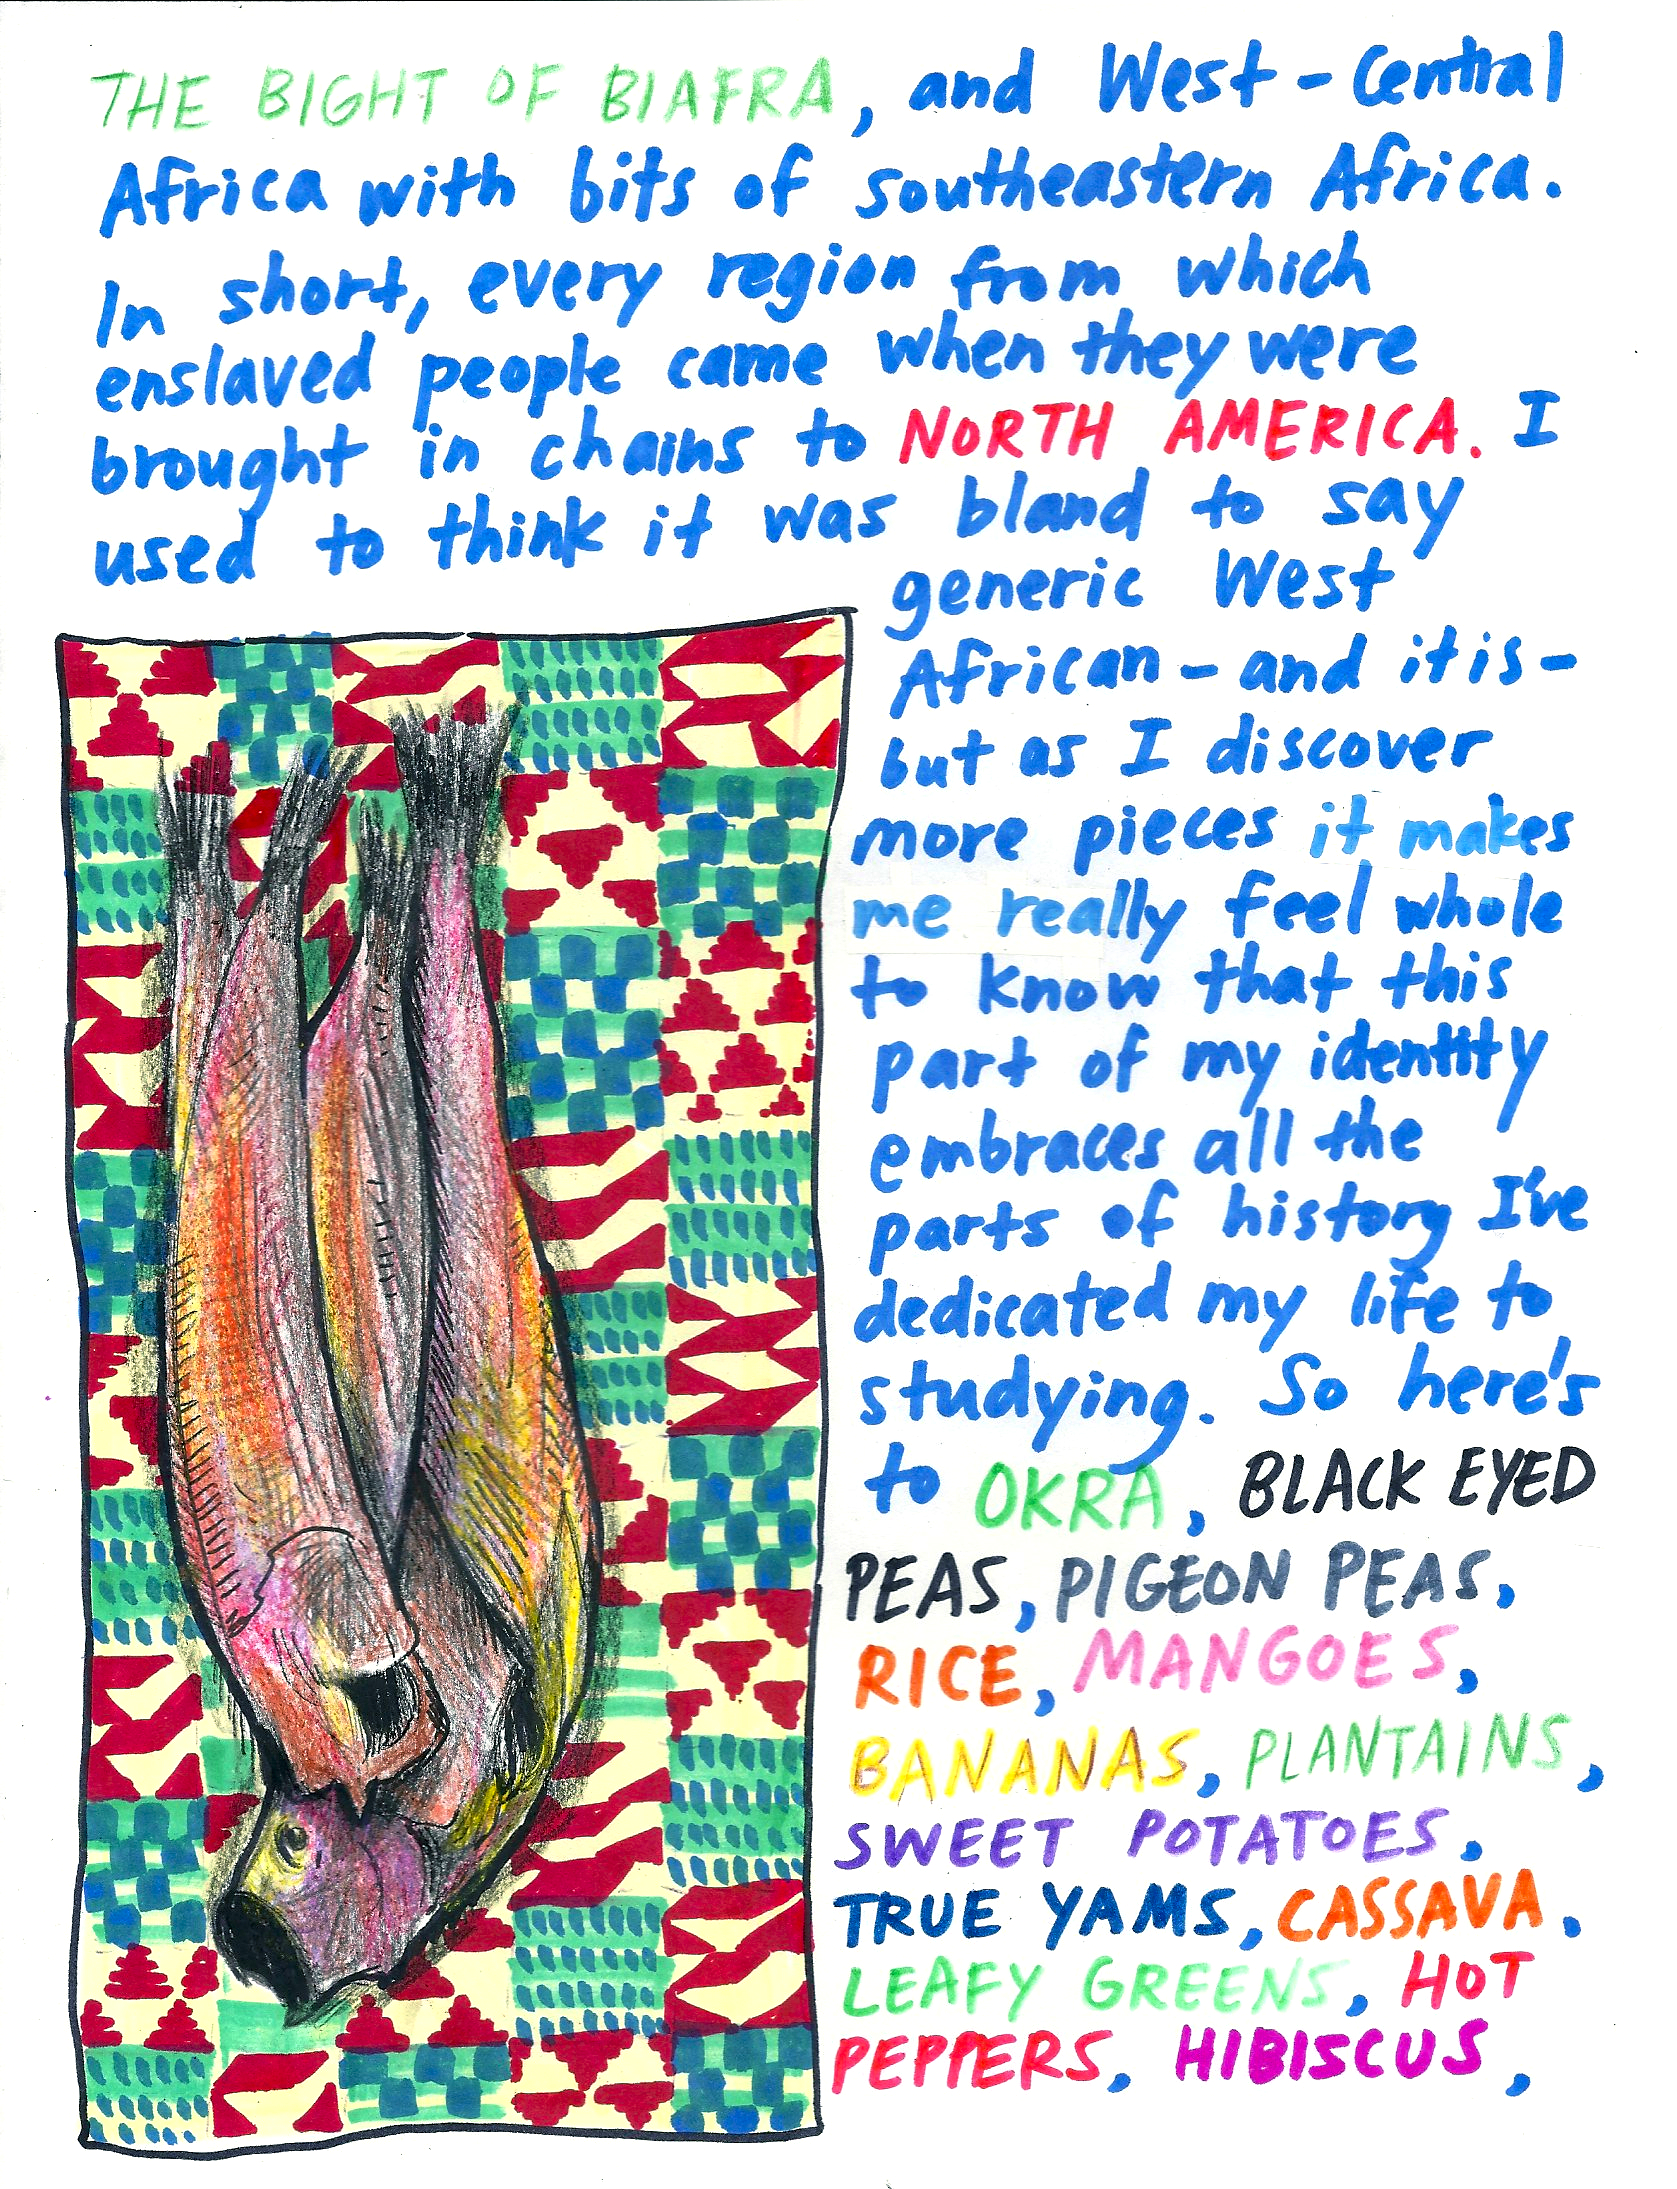 THE BIGHT OF BIAFRA, and West-Central
Africa with bits of southeastern Africa.
In short, every region from which
enslaved people came when they were
brought in chains to NORTH AMERICA. I
used to think it was bland to say
generic West
African-and it is-
but as I discover
more pieces it makes
me really feel whole
to know that this
part of my identity
embraces all the
parts of history I've
dedicated my life to
studying. So here's
to OKRA, BLACK EYED
PEAS, PIGEON PEAS,
RICE, MANGOES,
BANANAS, PLANTAINS,
SWEET POTATOES,
TRUE YAMS, CASSAVA,
LEAFY GREENS, HOT
PEPPERS, HIBISCUS,